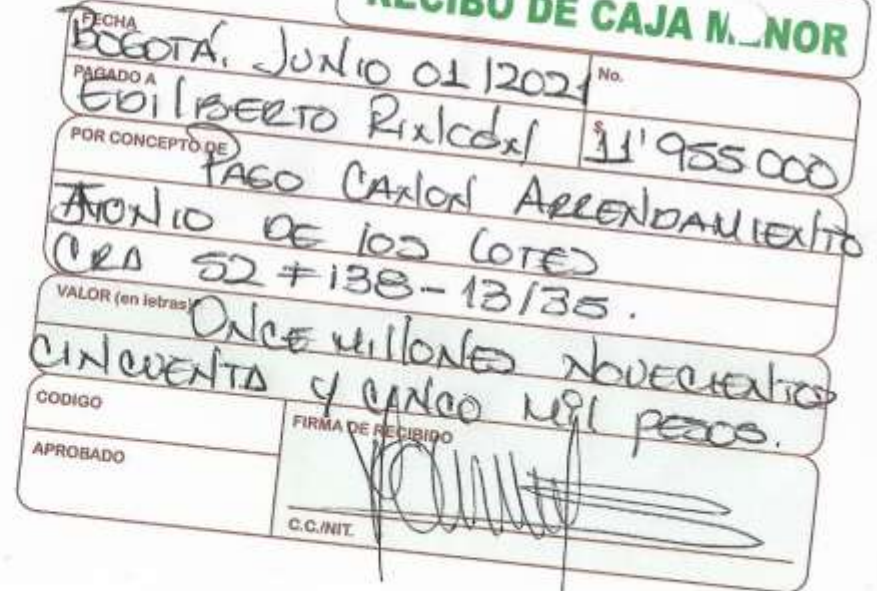 RECIBO DE CAJA M NOR
FECHA
BOGOTÁ, JUNIO 01/2021
No.
PAGADO A
EDILBERTO RINCÓN
$ 11'955.000
POR CONCEPTO DE
PAGO CANON ARRENDAMIENTO
JUNIO DE LOS LOTES
CRA 52 # 138-13/35.
VALOR (en letras)
ONCE MILLONES NOVECIENTOS
CINCUENTA Y CINCO MIL PESOS.
CODIGO
FIRMA DE RECIBIDO
APROBADO
C.C./NIT.